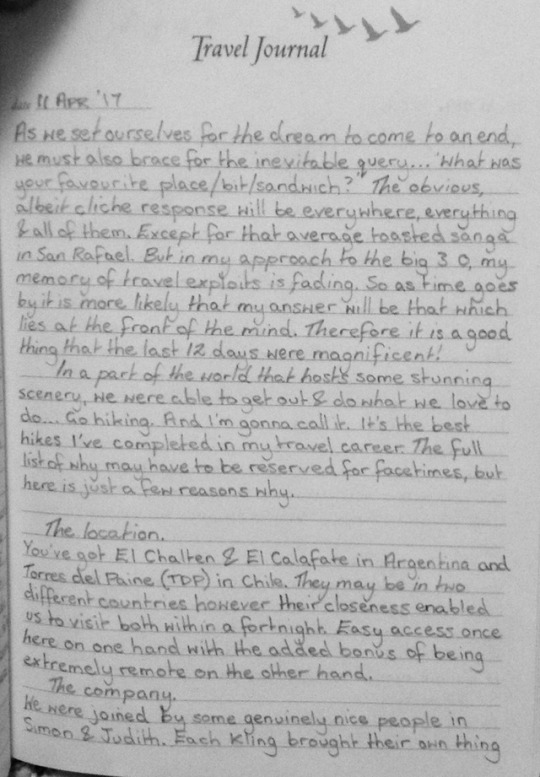 Travel Journal
11 APR '17
As we set ourselves for the dream to come to an end,
we must also brace for the inevitable query... 'What was
your favourite place/bit/sandwich?" The obvious,
albeit cliche response will be everywhere, everything
& all of them. Except for that average toasted sanga
in San Rafael. But in my approach to the big 3 0, my
memory of travel exploits is fading. So as time goes
by it is more likely that my answer will be that which
lies at the front of the mind. Therefore it is a good
thing that the last 12 days were magnificent!
In a part of the world that hosts some stunning
scenery, we were able to get out & do what we love to
do... Go hiking. And I'm gonna call it. It's the best
hikes I've completed in my travel career. The full
list of why may have to be reserved for facetimes, but
here is just a few reasons why.
The location.
You've got El Chalten & El Calafate in Argentina and
Torres del Paine (TDP) in Chile. They may be in two
different countries however their closeness enabled
us to visit both within a fortnight. Easy access once
here on one hand with the added bonus of being
extremely remote on the other hand.
The company.
We were joined by some genuinely nice people in
Simon & Judith. Each Kling brought their own thing